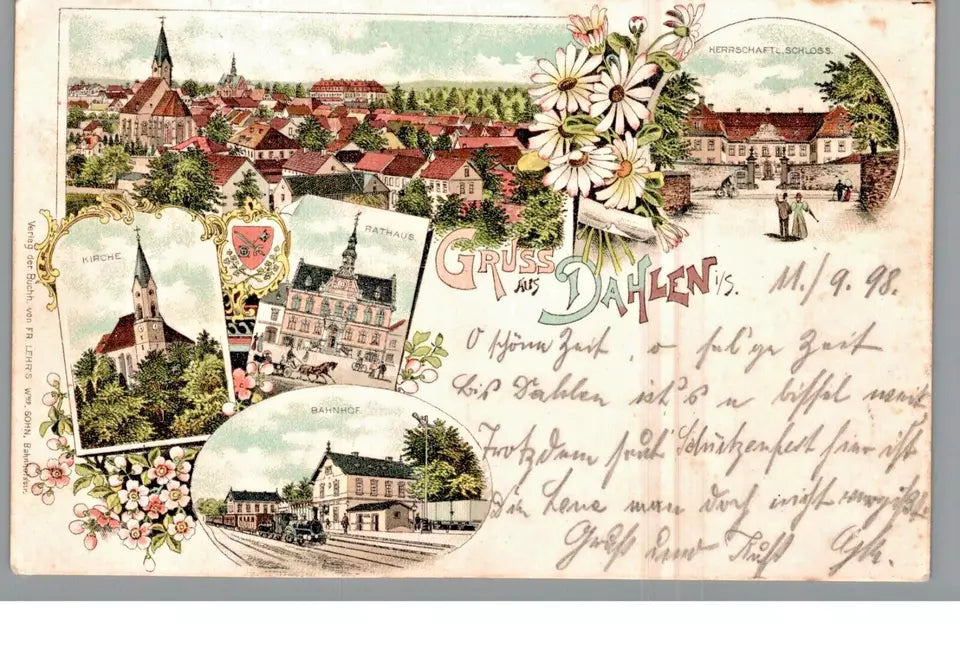 HERRSCHAFTL. SCHLOSS.
RATHAUS.
KIRCHE
GRUSS
AUS
DAHLEN i/S.
11./9.98.
O schöne Zeit, o sel'ge Zeit
bis Dahlen ist's n bissel weit
Trotzdem heut' Schützenfest hier ist
Die Lene man doch nicht vergißt.
Gruß und Kuß
BAHNHOF.
Verlag der Buchh. von FR. LEHR'S Wwe. SOHN, Bahnhofstr.